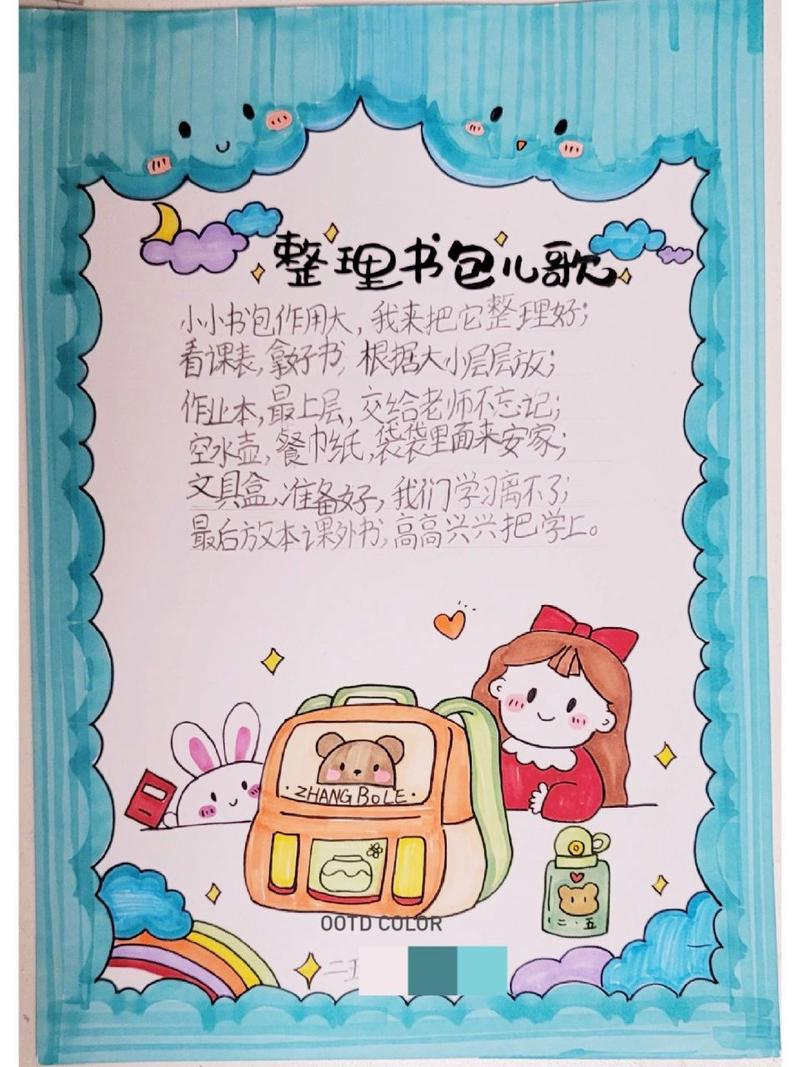 整理书包儿歌
小小书包作用大，我来把它整理好；
看课表，拿好书，根据大小层层放；
作业本，最上层，交给老师不忘记；
空水壶，餐巾纸，袋袋里面来安家；
文具盒，准备好，我们学习离不了；
最后放本课外书，高高兴兴把学上。
·ZHANG BoLE·
二·五
OOTD COLOR
二五